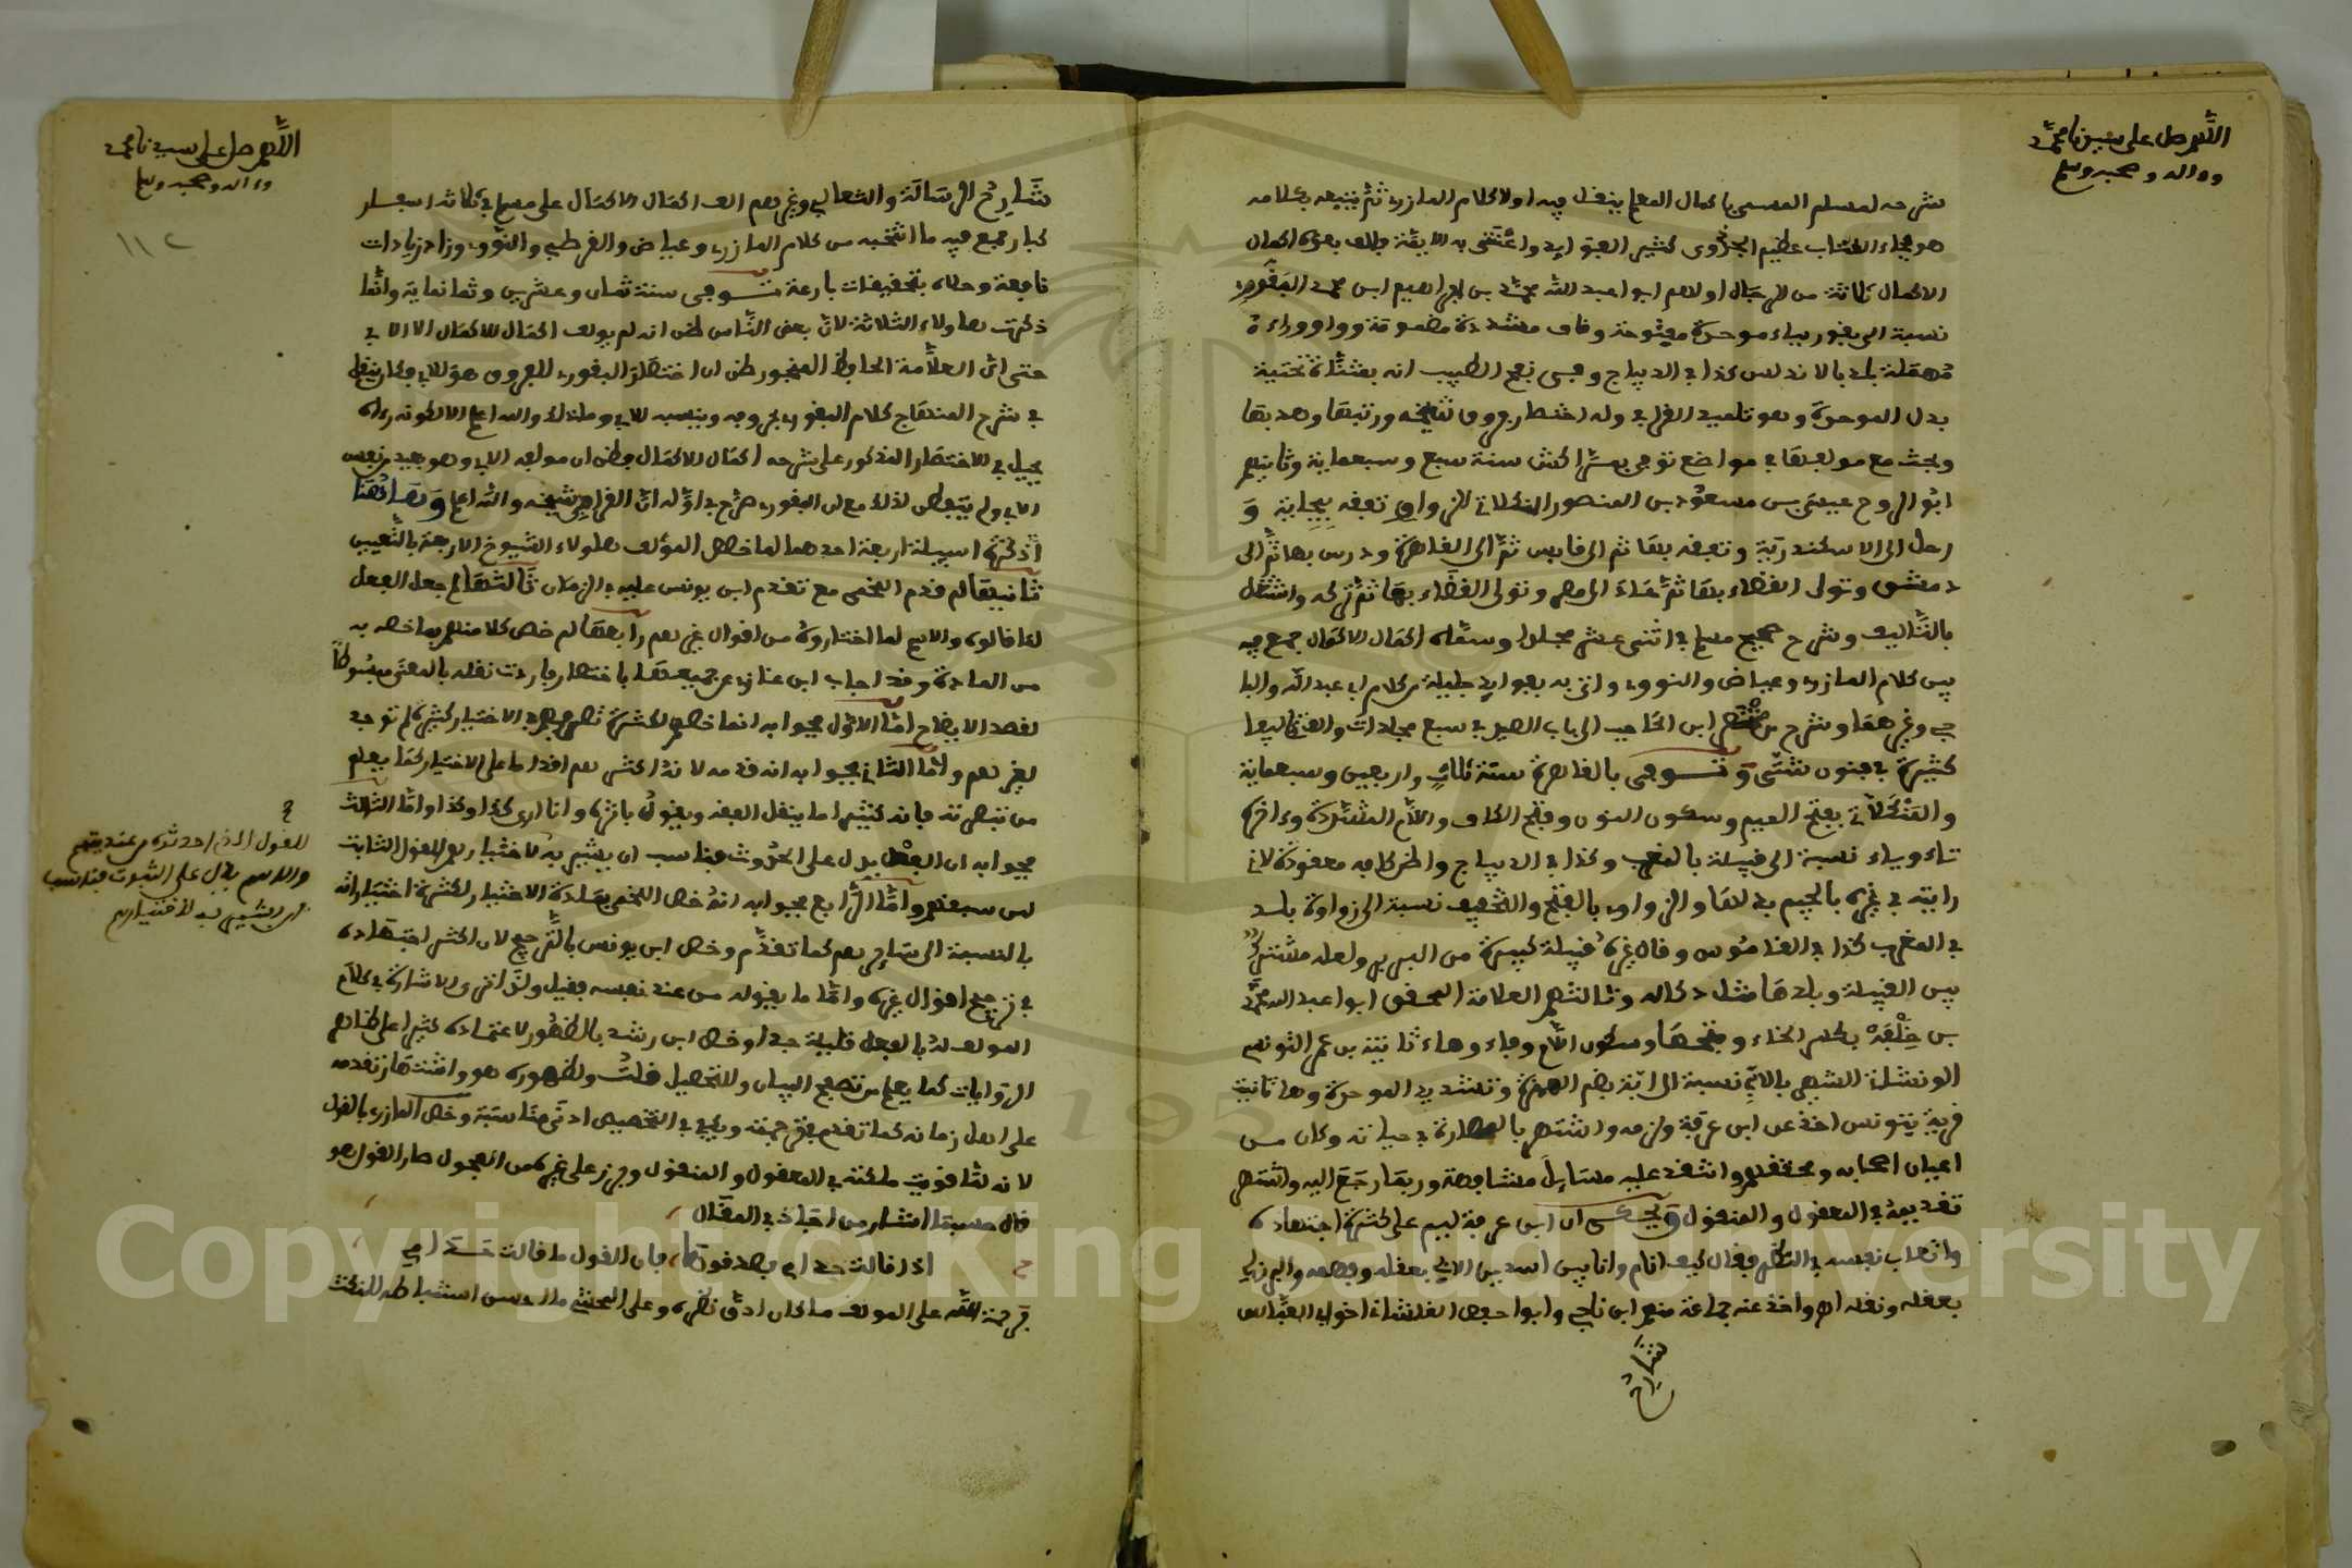 اللهم صل على سيدنا محمد
وءاله وصحبه وسلم
شرحه لمسلم المسمى باكمال المعلم ينقل فيه اولا كلام المازري ثم يتبعه بكلامه
هو فجاء الكتاب عظيم الجدوى كثير الفوايد واعتنى به الايمة فالف بعده اكمال
الاكمال ثلاثة من الرجال اولاهم ابوا عبد الله محمد بن ابراهيم ابن محمد البقوري
نسبة الى بقور بباء موحدة مفتوحة وقاف مشددة مضمومة وواو وراء
مهملة بلد بالاندلس كذا في الديباج وفي نفح الطيب انه بمثناة تحتية
بدل الموحدة وهو تلميذ القرافي وله اختصار فروق شيخه ورتبها وهذبها
وبحث مع مولفها في مواضع توفي بمراكش سنة سبع وسبعماية وثانيهم
ابو الروح عيسى بن مسعود بن المنصور المنكلاتي الزواوي تفقه ببجاية و
رحل الى الاسكندرية وتفقه بها ثم الى قابس ثم الى القاهرة ودرس بها ثم الى
دمشق وتولى القضاء بها ثم جاء الى مصر وتولى القضاء بها ثم تركه واشتغل
بالتاليف وشرح صحيح مسلم في اثنى عشر مجلدا وسماه اكمال الاكمال جمع فيه
بين كلام المازري وعياض والنووي واتى به بفوايد جليلة من كلام ابي عبد الله والبا
جي وغيرهما وشرح مختصر ابن الحاجب الى باب الصيد في سبع مجلدات والف تاليفا
كثيرة في فنون شتى وتوفى بالقاهرة سنة ثلاث واربعين وسبعماية
والمنكلاتي بفتح الميم وسكون النون وفتح الكاف واللام المشددة وءاخره
تاء وياء نسبة الى قبيلة بالمغرب وكذا في الديباج واظن كافه معقودة لاني
رايته في غيره بالجيم بدلها والزواوي بالفتح والتخفيف نسبة الى زواوة بلد
في المغرب كذا في القاموس وقال غيره قبيلة كبيرة من البربر ولعله مشترك
بين القبيلة وبلدها مثل دكاله وثالثهم العلامة المحقق ابوا عبد الله محمد
بن خلفة بكسر الخاء وفتحها وسكون اللام وفاء وهاء تانيث بن عمر التونسي
الوشتاتي الشهير بالابي نسبة الى ابة بضم الهمزة وتشديد الموحدة وهاء تانيث
قرية بتونس اخذ عن ابن عرفة ولزمه واشتهر بالمهارة في حياته وكان من
اعيان اصحابه ومحققيهم وانتقد عليه مسايل مشافهة وربما رجع اليه واشتهر
تقديمه في المعقول والمنقول ويحكى ان ابن عرفة ليم على كثرة اجتهاده
واتعاب نفسه في النظر فقال كيف انام وانا بين اسدين الابي بفهمه وعقله والبرزلي
بحفظه ونقله اهـ واخذ عنه جماعة منهم ابن ناجي وابوا حفص القلشاني اخوا ابي العباس
شارح
اللهم صل على سيدنا محمد
وءاله وصحبه وسلم
١١٢
شارح الرسالة والثعالبي وغيرهم الف اكمال الاكمال على مسلم في ثلاثة اسفار
كبار جمع فيه ما انتخبه من كلام المازري وعياض والقرطبي والنووي وزاد زيادات
نافعة وحلاه بتحقيقات بارعة توفى سنة ثمان وعشرين وثمانماية وانما
ذكرت هاولاء الثلاثة لان بعض الناس ظن انه لم يولف اكمال الاكمال الا الابي
حتى ان العلامة الحافظ المنجور ظن ان اختصار البقوري للفروق هو للابي فكان ينقل
في شرح المنهاج كلام البقوري بحروفه وينسبه للابي وما ذاك والله اعلم الا لكونه رءاه
يحيل في الاختصار المذكور على شرحه اكمال الاكمال فظن ان مولفه الابي وهو بعيد من نفس
الابي ولم يتفطن لذلك مع ان البقوري صرح في اوله ان القرافي شيخه والله اعلم وهاهنا
اذكر اسيلة اربعة احدها لما خص المولف هاولاء الشيوخ الاربعة بالتعيين
ثانيها لم قدم اللخمي مع تقدم ابن يونس عليه في الزمان ثالثها لم جعل الفعل
لما قالوه والاسم لما اختاروه من اقوال غيرهم رابعها لم خص كلا منهم بما خصه به
من المادة وقد اجاب ابن غازي عن جميعها باختصار فاردت نقله بالمعنى مبسوطا
لقصد الايضاح اما الاول فجوابه انما خصهم لكثرة تصرفهم في الاختيار كثرة لم توجد
لغيرهم واما الثاني فجوابه انه قدمه لانه اكثرهم اقداما على الاختيار كما يعلم
من تبصرته فانه كثيرا ما ينقل الفقه ويقول باثره وانا ارى كذا وكذا واما الثالث
فجوابه ان الفعل يدل على الحدوث فناسب ان يشير به لاختيارهم للقول الثابت
لمن سبقهم واما الرابع فجوابه انه خص اللخمي بمادة الاختيار لكثرة اختياراته
بالنسبة الى سايرهم كما تقدم وخص ابن يونس بالترجيح لان اكثر اجتهاده
في ترجيح اقوال غيره واما ما يقوله من عند نفسه فقليل ولذا ترى الاشارة في كلام
المولف له بالفعل قليلة جدا وخص ابن رشد بالظهور لاعتماده كثيرا على ظاهر
الروايات كما يعلم من تصفح البيان والتحصيل قلت ولظهوره هو واشتهاره وتقدمه
على اهل زمانه كما تقدم في ترجمته ويكفي في التخصيص ادنى مناسبة وخص المازري بالقول
لانه لما قويت ملكته في المعقول والمنقول وبرز على غيره من الفحول صار القول هو
قال حسبما اشار من اجاد في المقال
اذا قالت حذام فصدقوها، فان القول ما قالت حذام
فرحمة الله على المولف ما كان ادق نظره وعلى المحشي ما احسن استنباطه للنكت
للقول الذي احدثوه من عند انفسهم
والاسم يدل على الثبوت فناسب
ان يشير به لاختيارهم